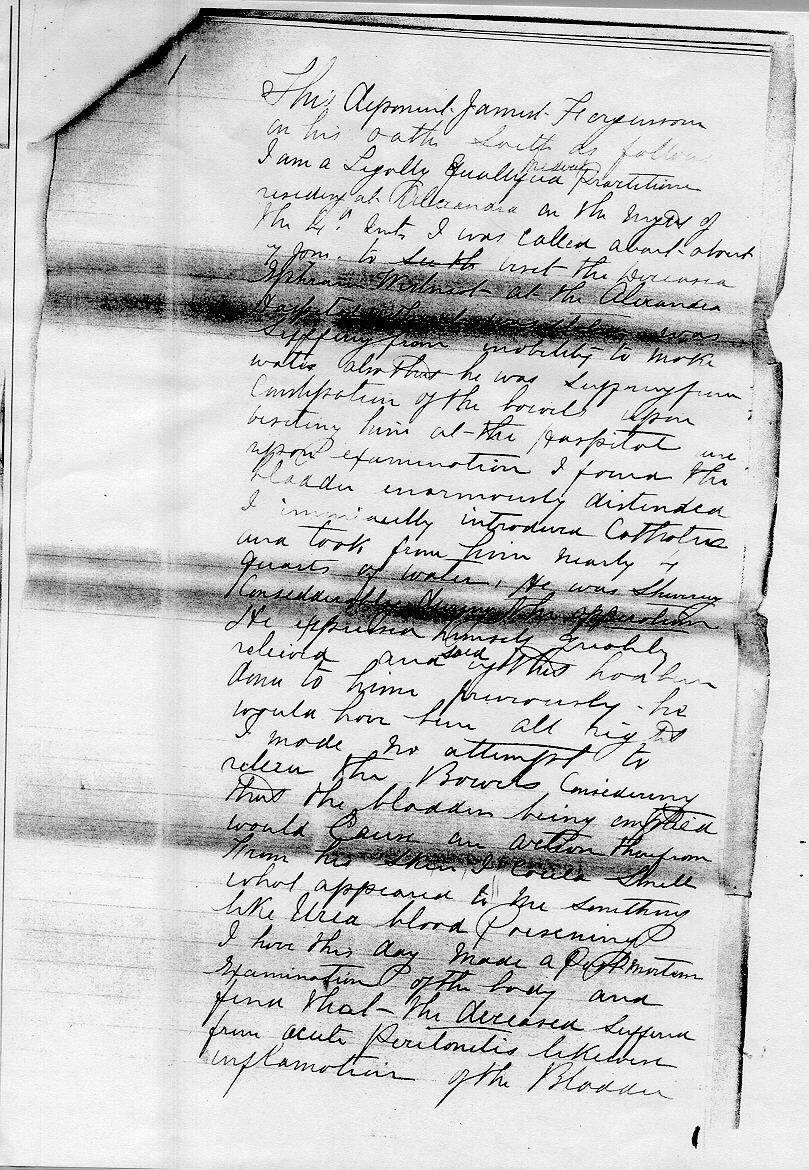 1
This deponent James Fergusson
on his oath saith as follows
I am a Legally Qualified Medical Practitione
residing at Alexandra on the night of
the 4th Inst I was called about about
7 pm. to visit the Deceased
Ephraim at the Alexandra
Hospital was
Suffering from inability to make
water also that he was suffering from
Constipation of the bowels upon
visiting him at the Hospital and
upon examination I found the
bladder enormously distended
I introduced Catheter
and took from him nearly
quarts of water, He was
Considerable during the operation
He expressed himself greatly
relieved and said if this had been
done to him previously he
would have been all right
I made no attempt to
relieve the Bowels Considering
that the bladder being emptied
would Cause an action therefrom
From his Skin I could Smell
what appeared to me something
like Urea blood Poisening
I have this day made a Post Mortem
Examination of the body and
find that the deceased Suffered
from acute Peritonitis likewise
inflamation of the Bladder